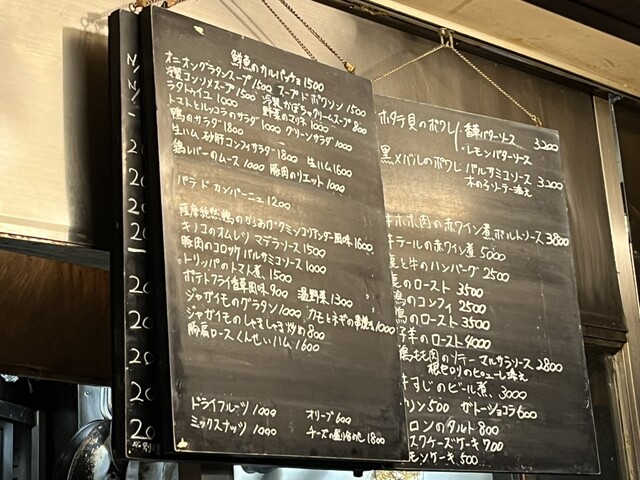 鮮魚のカルパッチョ 1500
オニオングラタンスープ 1500 スープドポワソン 1500
冷製コンソメスープ 1500 冷製かぼちゃクリームスープ 800
ラタトゥイユ 1000 野菜のマリネ 1000
トマトとルッコラのサラダ 1000 グリーンサラダ 1000
鴨のサラダ 1800
生ハム、砂肝コンフィサラダ 1800 生ハム 1600
鶏レバーのムース 1000 豚肉のリエット 1000
パテドカンパーニュ 1200
薩摩純然鶏のからあげクミンコリアンダー風味 1600
キノコのオムレツ マデラソース 1500
豚肉のコロッケ バルサミコソース 1000
トリッパのトマト煮 1500
ポテトフライ 900 温野菜 1300
ジャガイモのグラタン 1000 カモとネギの串焼き 1000
ジャガイモのしゃきしゃき炒め 800
豚肩ロースくんせいハム 1600
ドライフルーツ 1000 オリーブ 600
ミックスナッツ 1000 チーズの盛り合わせ 1800
ホタテ貝のポワレ バターソース 3200
・レモンバターソース
黒メバルのポワレ バルサミコソース 3200
木の子ソテー添え
ホホ肉の赤ワイン煮 ポルトソース 3800
テールの赤ワイン煮 5000
と牛のハンバーグ 2500
のロースト 3500
のコンフィ 2500
のロースト 3500
子羊のロースト 4000
もも肉のソテー マルサラソース 2800
根セロリのピューレ添え
すじのビール煮 3000
リン 500 ガトーショコラ 600
ロンのタルト 800
スクチーズケーキ 700
モンケーキ 500